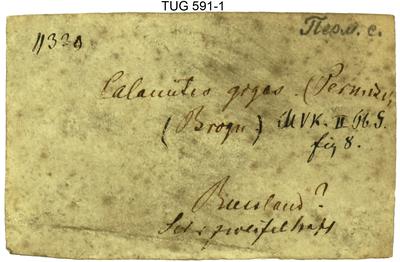 TUG 591-1
Перм. с.
Calamites gigas. (Permien
(Brogn.) MVK. II
fig 8.
Russland?
Sehr zweifelhaft